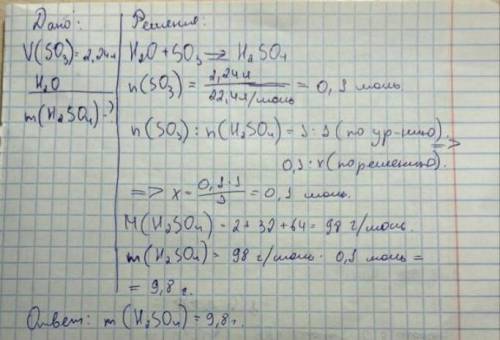 Дано:
V(SO3)=2,24л
H2O
m(H2SO4)-?
Решение:
H2O + SO3 => H2SO4
n(SO3) = 2,24л / 22,4л/моль = 0,1 моль.
n(SO3) : n(H2SO4) = 1 : 1 (по ур-нию). =>
0,1 : x (по решению).
=> x - 0,1·1 / 1 = 0,1 моль.
M(H2SO4) = 2+32+64= 98 г/моль.
m(H2SO4) = 98 г/моль · 0,1 моль =
= 9,8 г.
Ответ: m(H2SO4) = 9,8г.